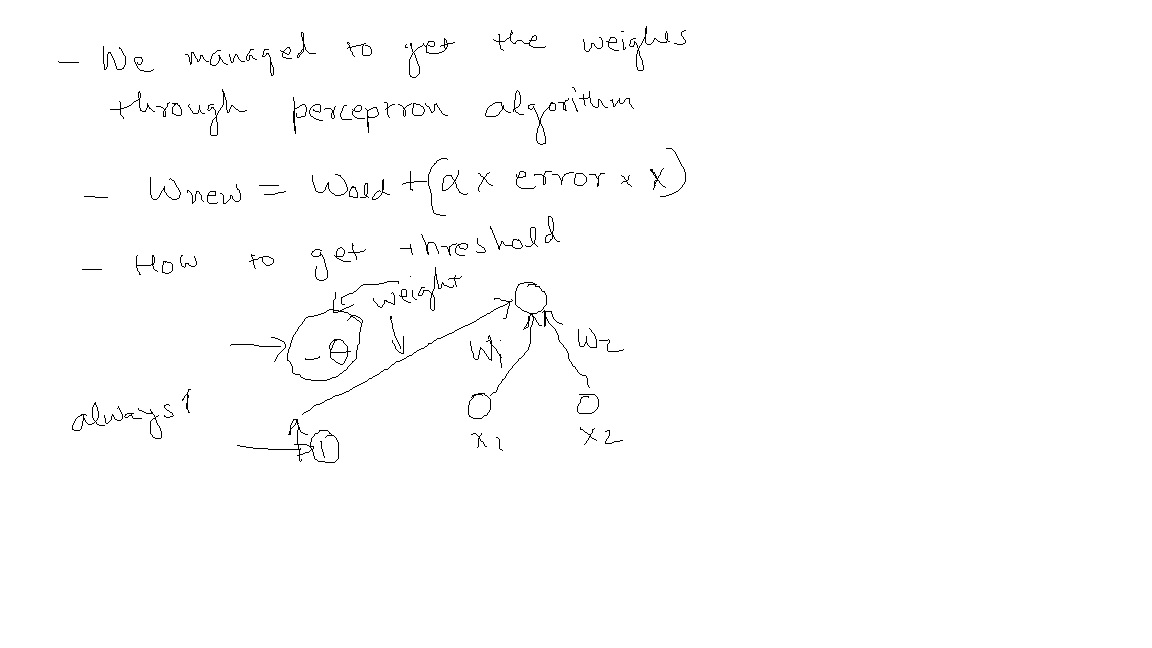 - We managed to get the weighes
through perceptron algorithm
- Wnew = Wold + (α x error x x)
- How to get threshold
weight
- θ
W1 W2
always 1
1
x1 x2